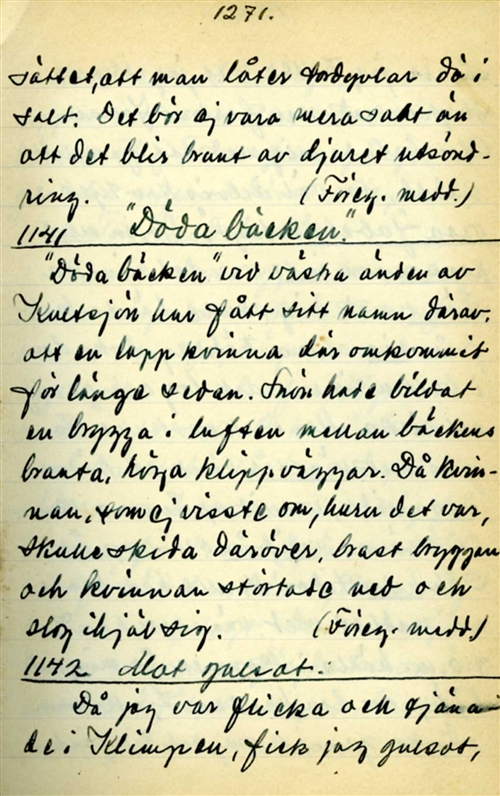 1271.
sättet, att man låter tordyvlar dö i
salt. Det bör ej vara mera salt än
att det blir brunt av djuret utsönd-
ring. (Föreg. medd.)
1141 "Döda bäcken".
"Döda bäcken" vid västra änden av
Kultsjön har fått sitt namn därav,
att en lapp kvinna där omkommit
för länge sedan. Snön hade bildat
en brygga i luften mellan bäckens
branta, höga klippväggar. Då kvin-
nan, som ej visste om, huru det var,
skulle skida däröver, brast bryggan
och kvinnan störtade ned och
slog ihjäl sig. (Föreg. medd.)
1142 Mot gulsot.
Då jag var flicka och tjäna-
de i Klimpen, fick jag gulsot,